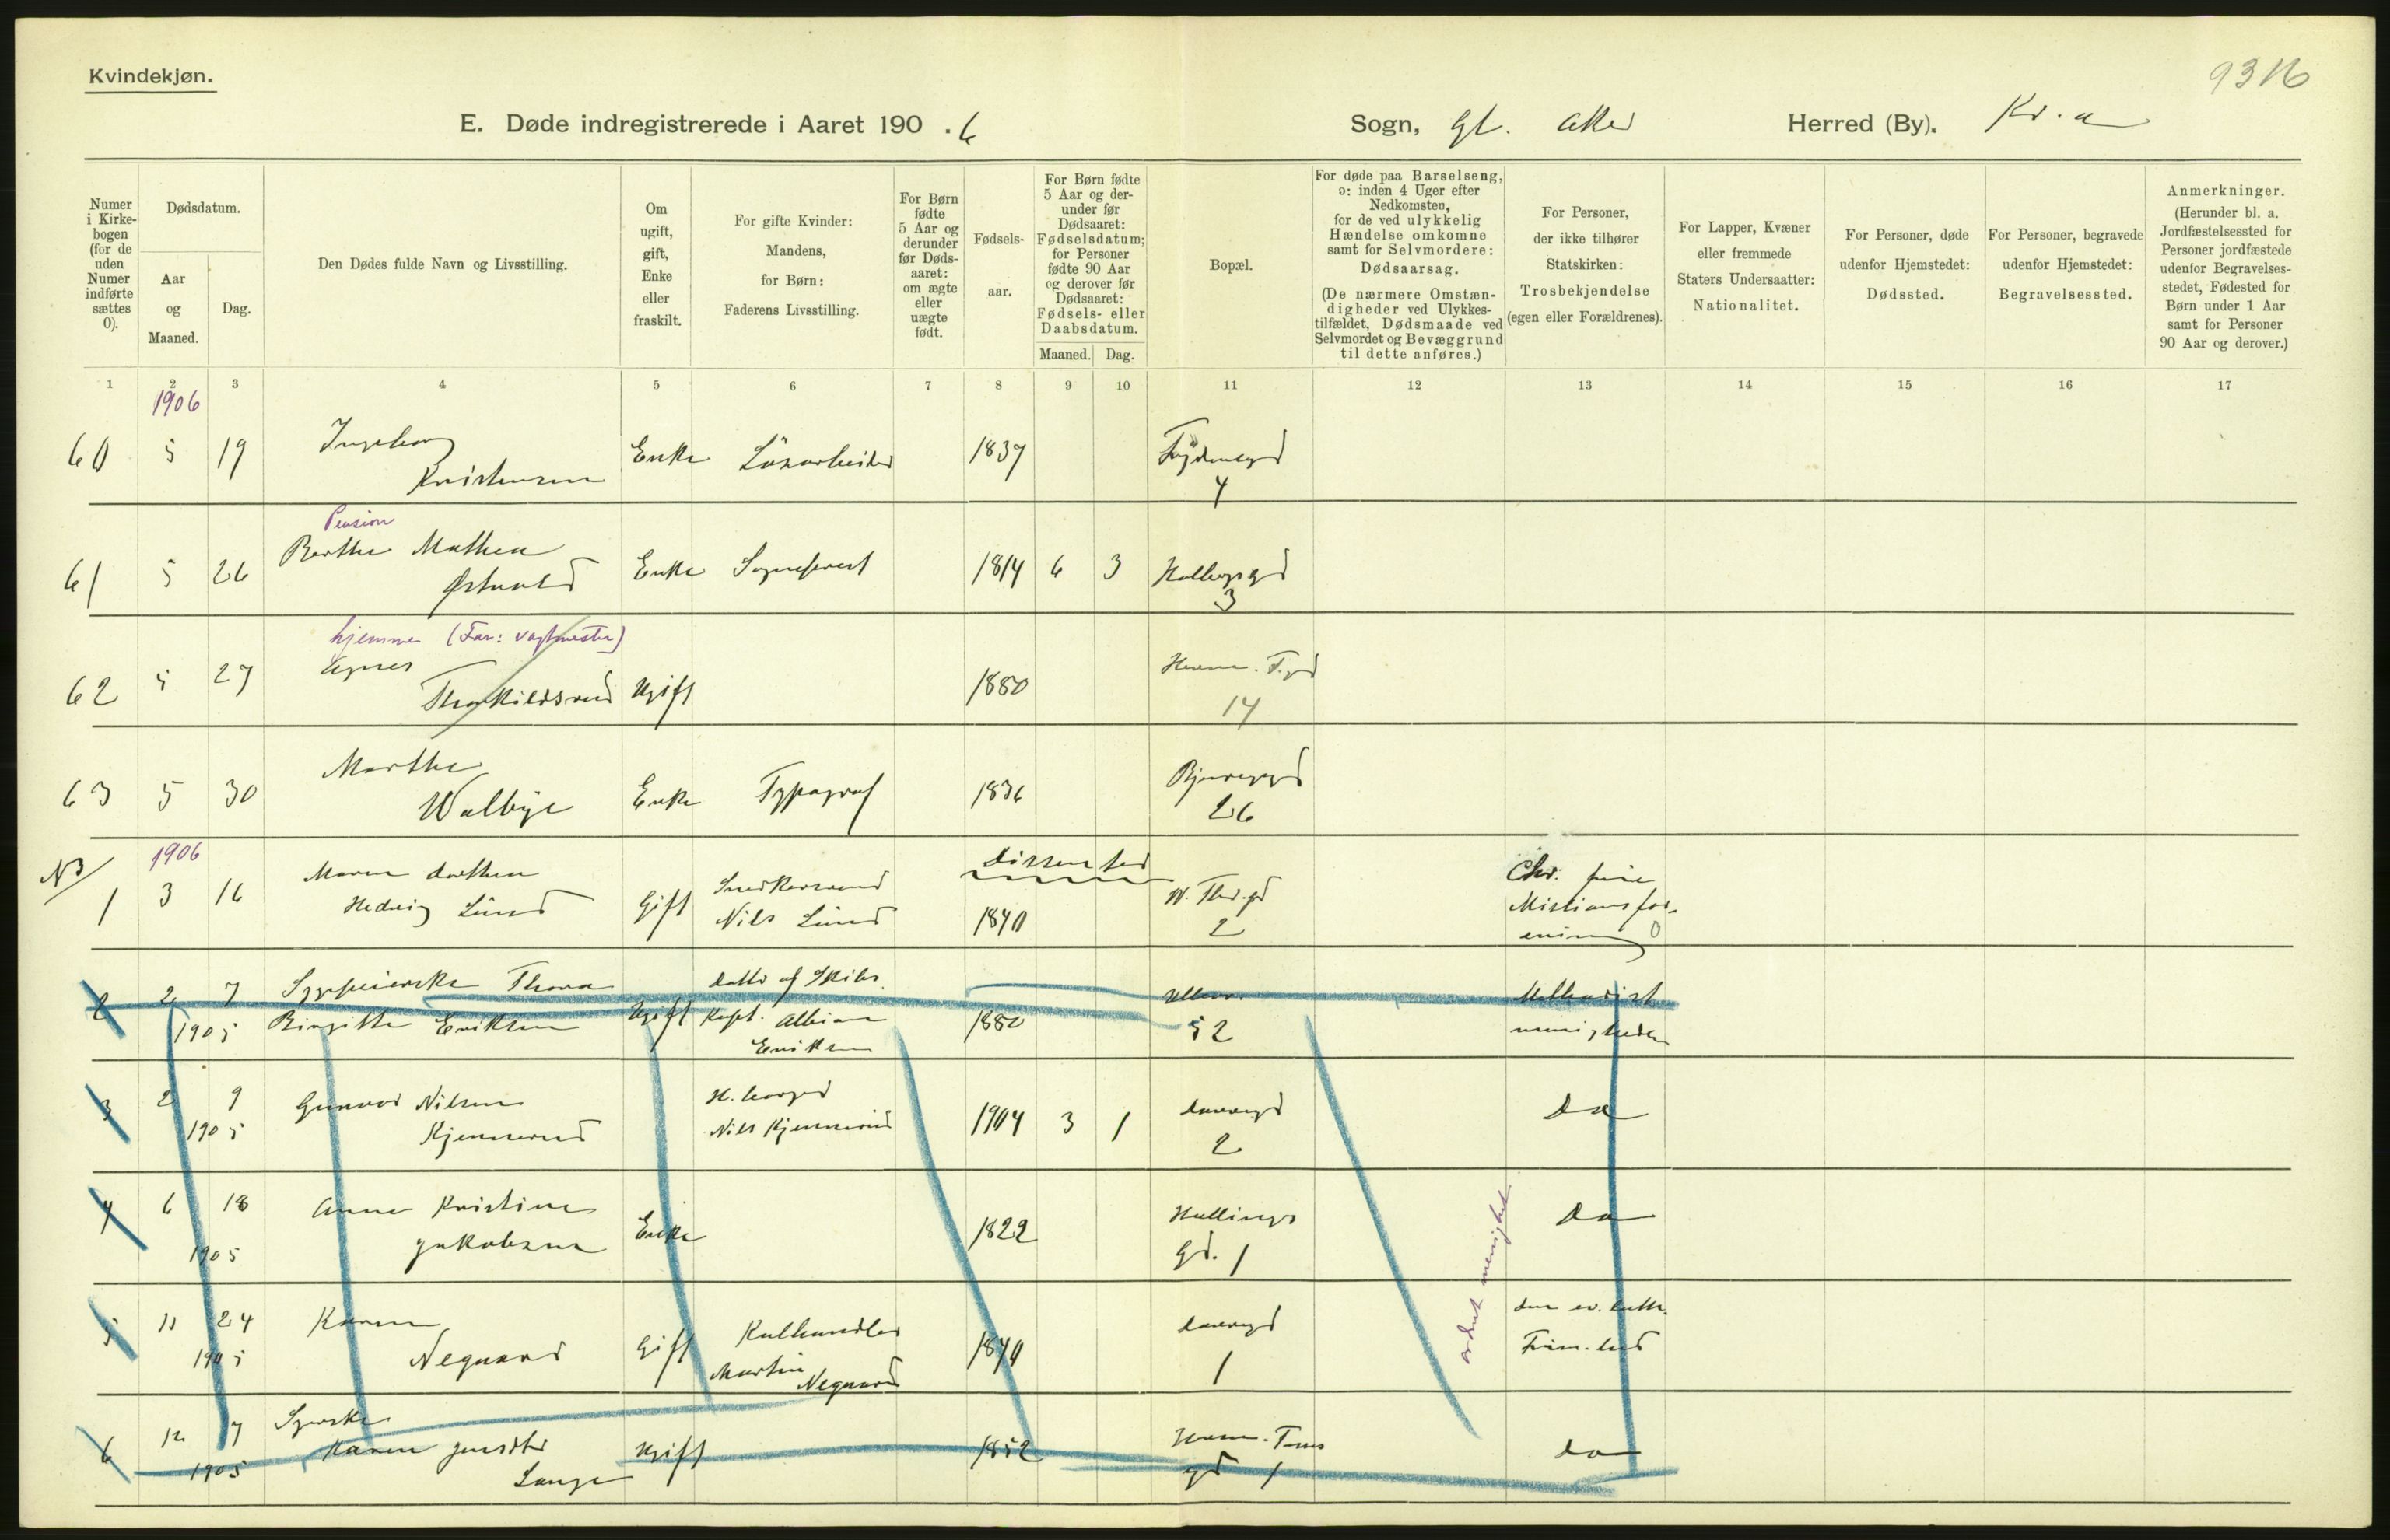 Kvindekjøn.
9316
E. Døde indregistrerede i Aaret 190 . 6
Sogn, Gl. Aker
Herred (By). Kr.a
Numer
i Kirke-
bogen
(for de
uden
Numer
indførte
sættes
0).
Dødsdatum.
Aar
og
Maaned.
Dag.
Den Dødes fulde Navn og Livsstilling.
Om
ugift,
gift,
Enke
eller
fraskilt.
For gifte Kvinder:
Mandens,
for Børn:
Faderens Livsstilling.
For Børn
fødte
5 Aar og
derunder
før Døds-
aaret:
om ægte
eller
uægte
født.
Fødsels-
aar.
For Børn fødte
5 Aar og der-
under før
Dødsaaret:
Fødselsdatum;
for Personer
fødte 90 Aar
og derover før
Dødsaaret:
Fødsels- eller
Daabsdatum.
Maaned. Dag.
Bopæl.
For døde paa Barselseng,
ɔ: inden 4 Uger efter
Nedkomsten,
for de ved ulykkelig
Hændelse omkomne
samt for Selvmordere:
Dødsaarsag.
(De nærmere Omstæn-
digheder ved Ulykkes-
tilfældet, Dødsmaade ved
Selvmordet og Bevæggrund
til dette anføres.)
For Personer,
der ikke tilhører
Statskirken:
Trosbekjendelse
(egen eller Forældrenes).
For Lapper, Kvæner
eller fremmede
Staters Undersaatter:
Nationalitet.
For Personer, døde
udenfor Hjemstedet:
Dødssted.
For Personer, begravede
udenfor Hjemstedet:
Begravelsessted.
Anmerkninger.
(Herunder bl. a.
Jordfæstelsessted for
Personer jordfæstede
udenfor Begravelses-
stedet, Fødested for
Børn under 1 Aar
samt for Personer
90 Aar og derover.)
1 2 3 4 5 6 7 8 9 10 11 12 13 14 15 16 17
1906
60 5 19 Ingeborg
Kristensen
Enke Løsarbeider 1837
4
Pension
61 5 26 Berthe Mathea
Østvold
Enke Sogneprest 1814 6 3 Holbergsgd
3
hjemme (Far: vagtmester)
62 5 27 Agnes
Thorkildsrud
Ugift 1880 Herm. F.gd
14
63 5 30 Marthe
Walbye
Enke Typograf 1836 Bjerregd
26
1906
1 3 16 Maren Dorthea
Hedvig Lund
Gift Snedkersvend
Nils Lund
Dissenter
1840
W. Thr.gd
2
Chr. frie
Missionsfor-
ening 0
2 2 7 1905 Sygepleierske Thora
Birgitte Eriksen
Ugift Datter af Skibs.
Kapt. Albian
Eriksen
1880 Ullev.
52
Methodist
menigheden
3 2 9 1905 Gunvor Nilsen
Kjennerud
Nils Kjennerud
1904 3 1
2
Do
4 6 18 1905 Anna Kristine
Jakobsen
Enke 1822 Hallings
Gd. 1
Do
5 11 24 1905 Karen
Negaard
Gift Kulhandler
Martin Negaard
1
den ev. luth.
Frim.
menighet
6 12 7 1905
Karen
Lange
Ugift 1852 Herm. Foss
gd 1
do